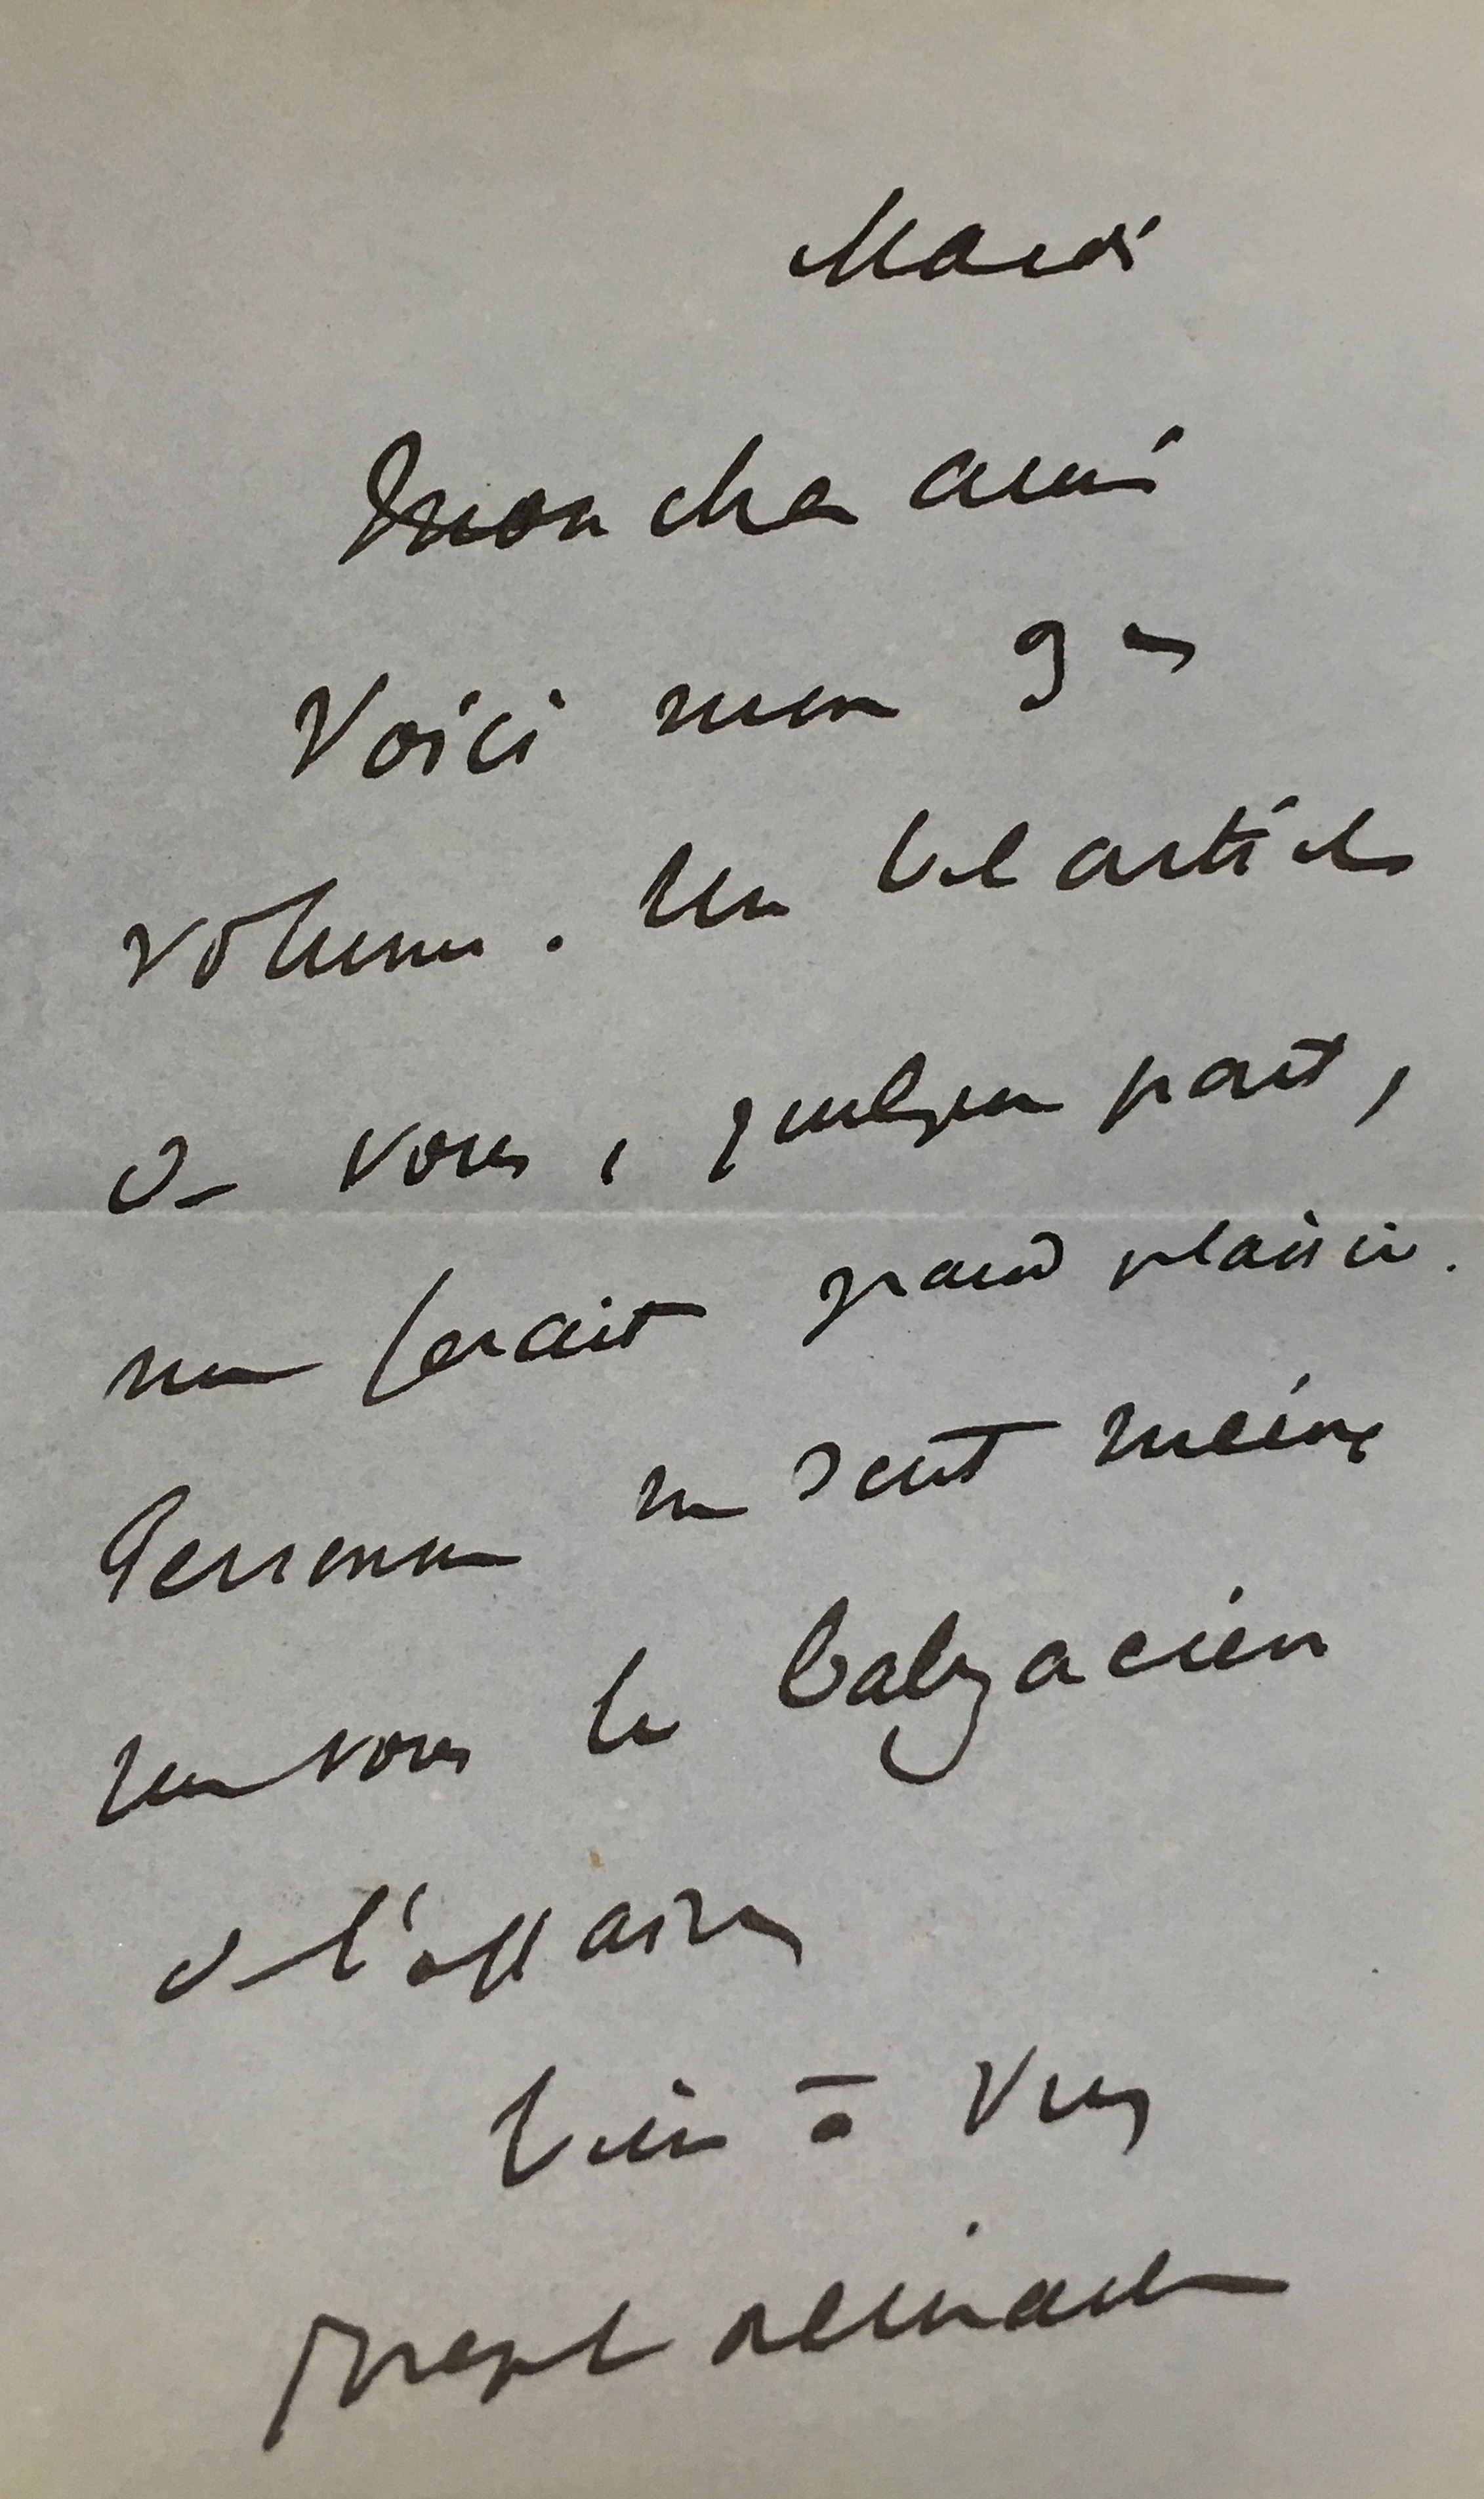 Mardi
Mon cher ami
Voici mon 3e
volume. Un bel article
de vous, quelque part,
me ferait grand plaisir.
Personne ne sent mieux
que vous le balzacien
de l'affaire
bien à vous
Joseph Reinach